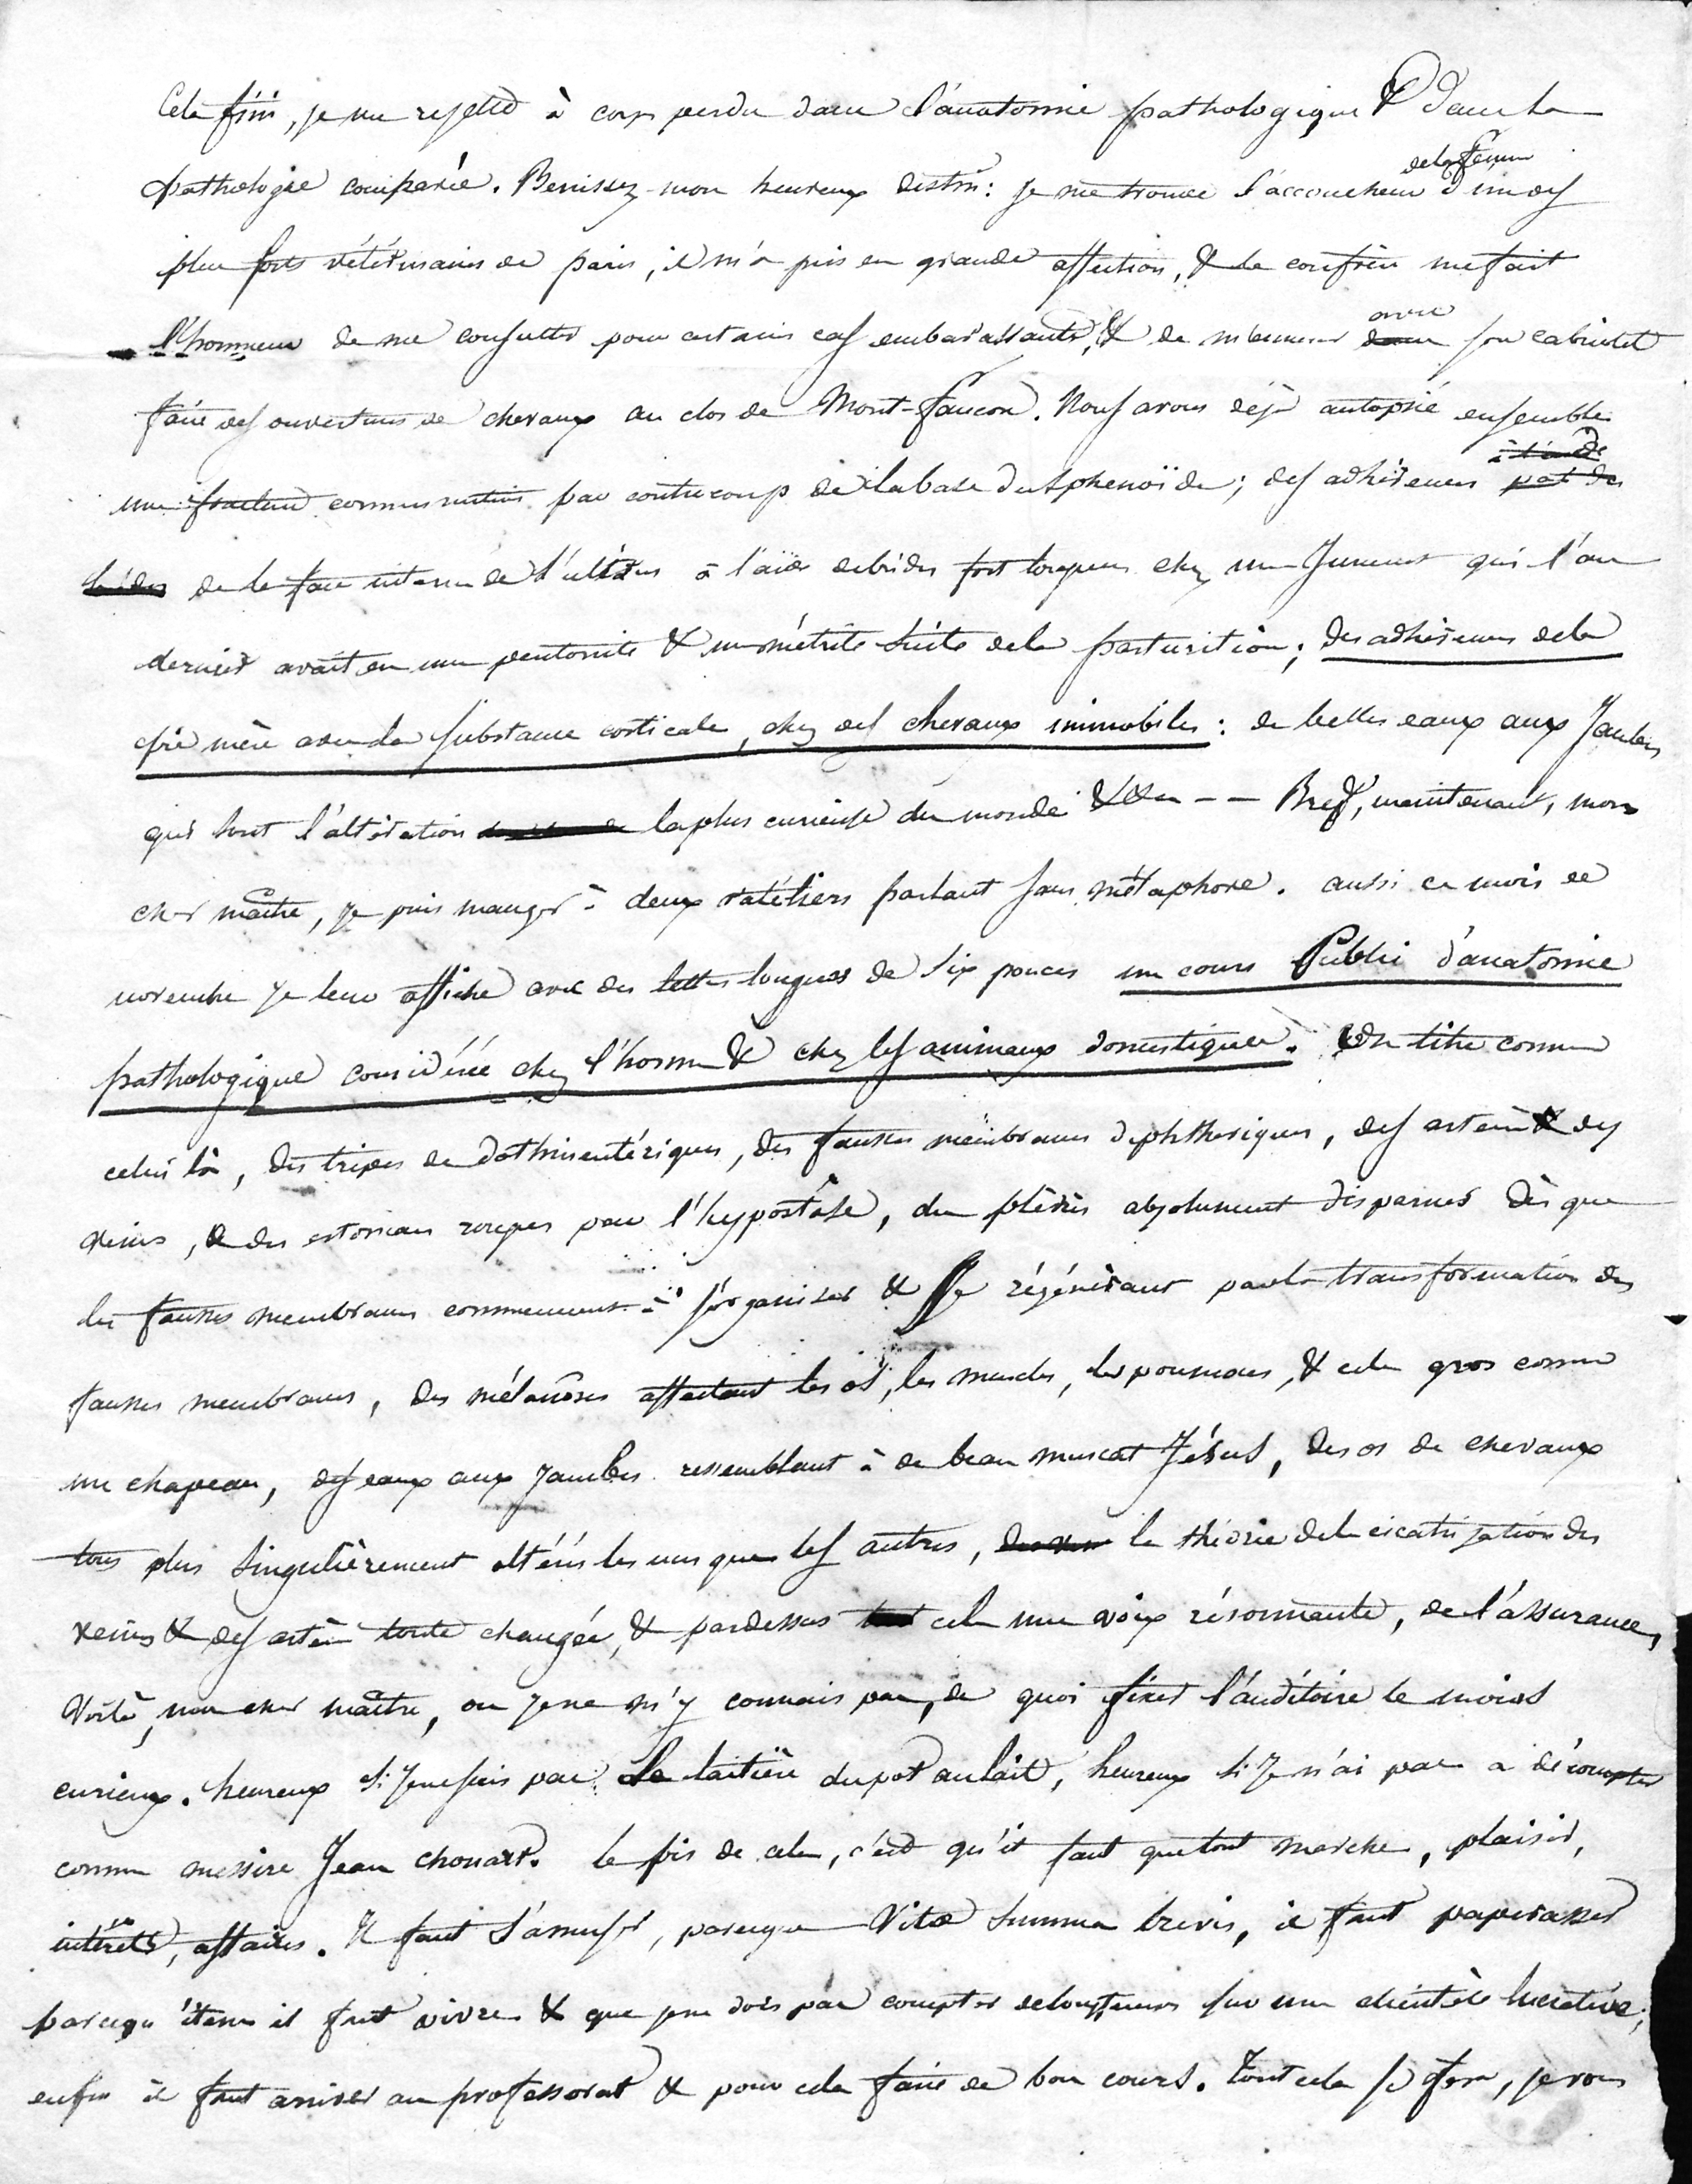 Cela fini, je me rejette à corps perdu dans l'anatomie pathologique & dans la
pathologie comparée. Benissez mon heureux destin : je me trouve l'accoucheur de la femme d'un des
plus forts vétérinaires de paris, il m'a pris en grande affection, & le confrère me fait
l'honneur de me consulter pour certains cas embarassants, & de m'emmener avec son cabriolet
faire des ouvertures de chevaux au clos de Mont-faucon. Nous avons déjà autopsié ensemble
une fracture comminutive par contrecoup de la base du sphenoïde ; des adhérences
de la face interne de l'utérus à l'aide de brides fort longues chez une Jument qui l'an
dernier avait eu une peritonite & une métrite suite de la parturition ; des adhérences de la
pie mère avec la substance corticale, chez des chevaux immobiles : de belles eaux aux Jambes
qui sont l'altération la plus curieuse du monde &&& - - Bref, maintenant, mon
cher maître, je puis manger à deux rateliers parlant sans métaphore. aussi ce mois de
novembre je leur affiche avec des lettres longues de six pouces un cours Public d'anatomie
pathologique considérée chez l'homme & chez les animaux domestiques. Un titre comme
celui là, des tripes de dothinentériques, des fausses membranes diphthériques, des artères & des
veines, & des estomacs rouges par l'hypostase, des plèvres absolument disparues dès que
les fausses membranes commencent à s'organiser & se régénérant par la transformation des
fausses membranes, des mélanoses affectant les os, les muscles, les poumons, & cela gros comme
un chapeau, des eaux aux jambes ressemblant à de beau muscat Jésus, des os de chevaux
tous plus singulièrement altérés les uns que les autres, la théorie de la cicatrisation des
veines & des artères toute changée, & pardessus cela une voix résonnante, de l'assurance,
Voilà, mon cher maître, ou je ne m'y connais pas, de quoi fixer l'auditoire le moins
curieux. heureux si je ne suis pas la laitière du pot au lait, heureux si je n'ai pas a décompter
comme messire Jean chouart. le pis de cela, c'est qu'il faut que tout marche, plaisir,
intérêts, affaires. Il faut s'amuser, parceque Vitae summa brevis, il faut paperasser
parcequ'il faut vivre & que je ne dois pas compter de longtemps sur une clientèle lucrative ;
enfin il faut arriver au professorat & pour cela faire de bon cours. Tout cela se fera, je vous